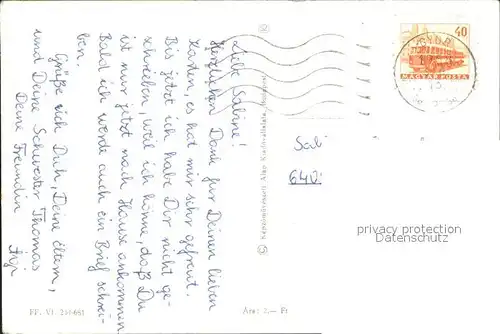 Liebe Sabine!
Herzlichen Dank für Deinen lieben
Karten, es hat mir sehr gefreut.
Bis jetzt ich habe Dir nicht ge-
schrieben, weil ich könne, daß Du
ist nur jetzt nach Hause ankommen
Bald ich werde auch ein Brief schrei-
ben.
Grüße dich Duh, Deine Eltern,
und Deine Schwester Thomas
Deine Freundin
FF. VI.
Ára: 2,— Ft
Képzőművészeti Alap Kiadóvállalata, Budapest
GYŐR
40
MAGYAR POSTA
Sab
640
privacy protection
Datenschutz